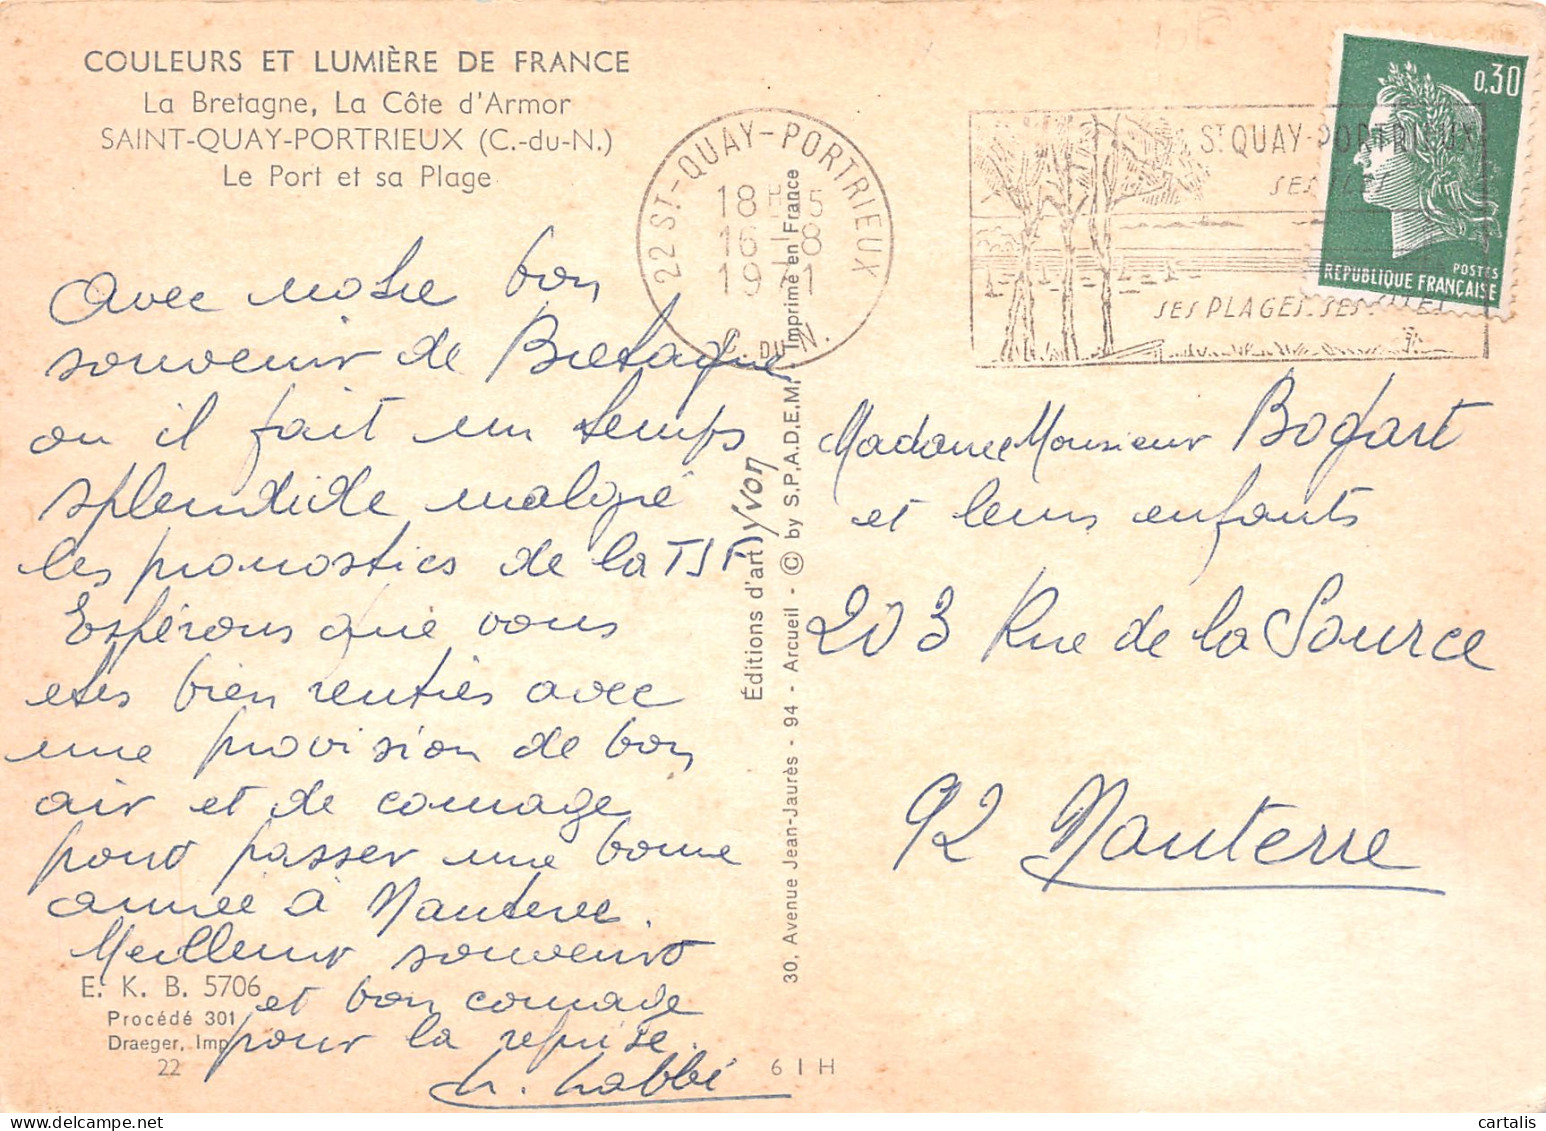 COULEURS ET LUMIÈRE DE FRANCE
La Bretagne, La Côte d'Armor
SAINT-QUAY-PORTRIEUX (C.-du-N.)
Le Port et sa Plage
Avec notre bon
souvenir de Bretagne
ou il fait un temps
splendide malgré
les pronostics de la TSF
Espérons que vous
etes bien rentrés avec
une provision de bon
air et de courage
pour passer une bonne
année à Nanterre.
Meilleur souvenir
et bon courage
pour la reprise.
Labbé
E. K. B. 5706
Procédé 301
Draeger, Imp.
22
6 I H
Éditions d'art Yvon
30, Avenue Jean-Jaurès - 94 - Arcueil - © by S.P.A.D.E.M.
Imprimé en France
22 ST-QUAY-PORTRIEUX
18H15
16-8
1971
C. DU N.
ST QUAY-PORTRIEUX
SES ILES
SES PLAGES-SES SITES
0,30
POSTES
REPUBLIQUE FRANÇAISE
Madame Monsieur Bogart
et leurs enfants
203 Rue de la Source
92 Nanterre
cartalis